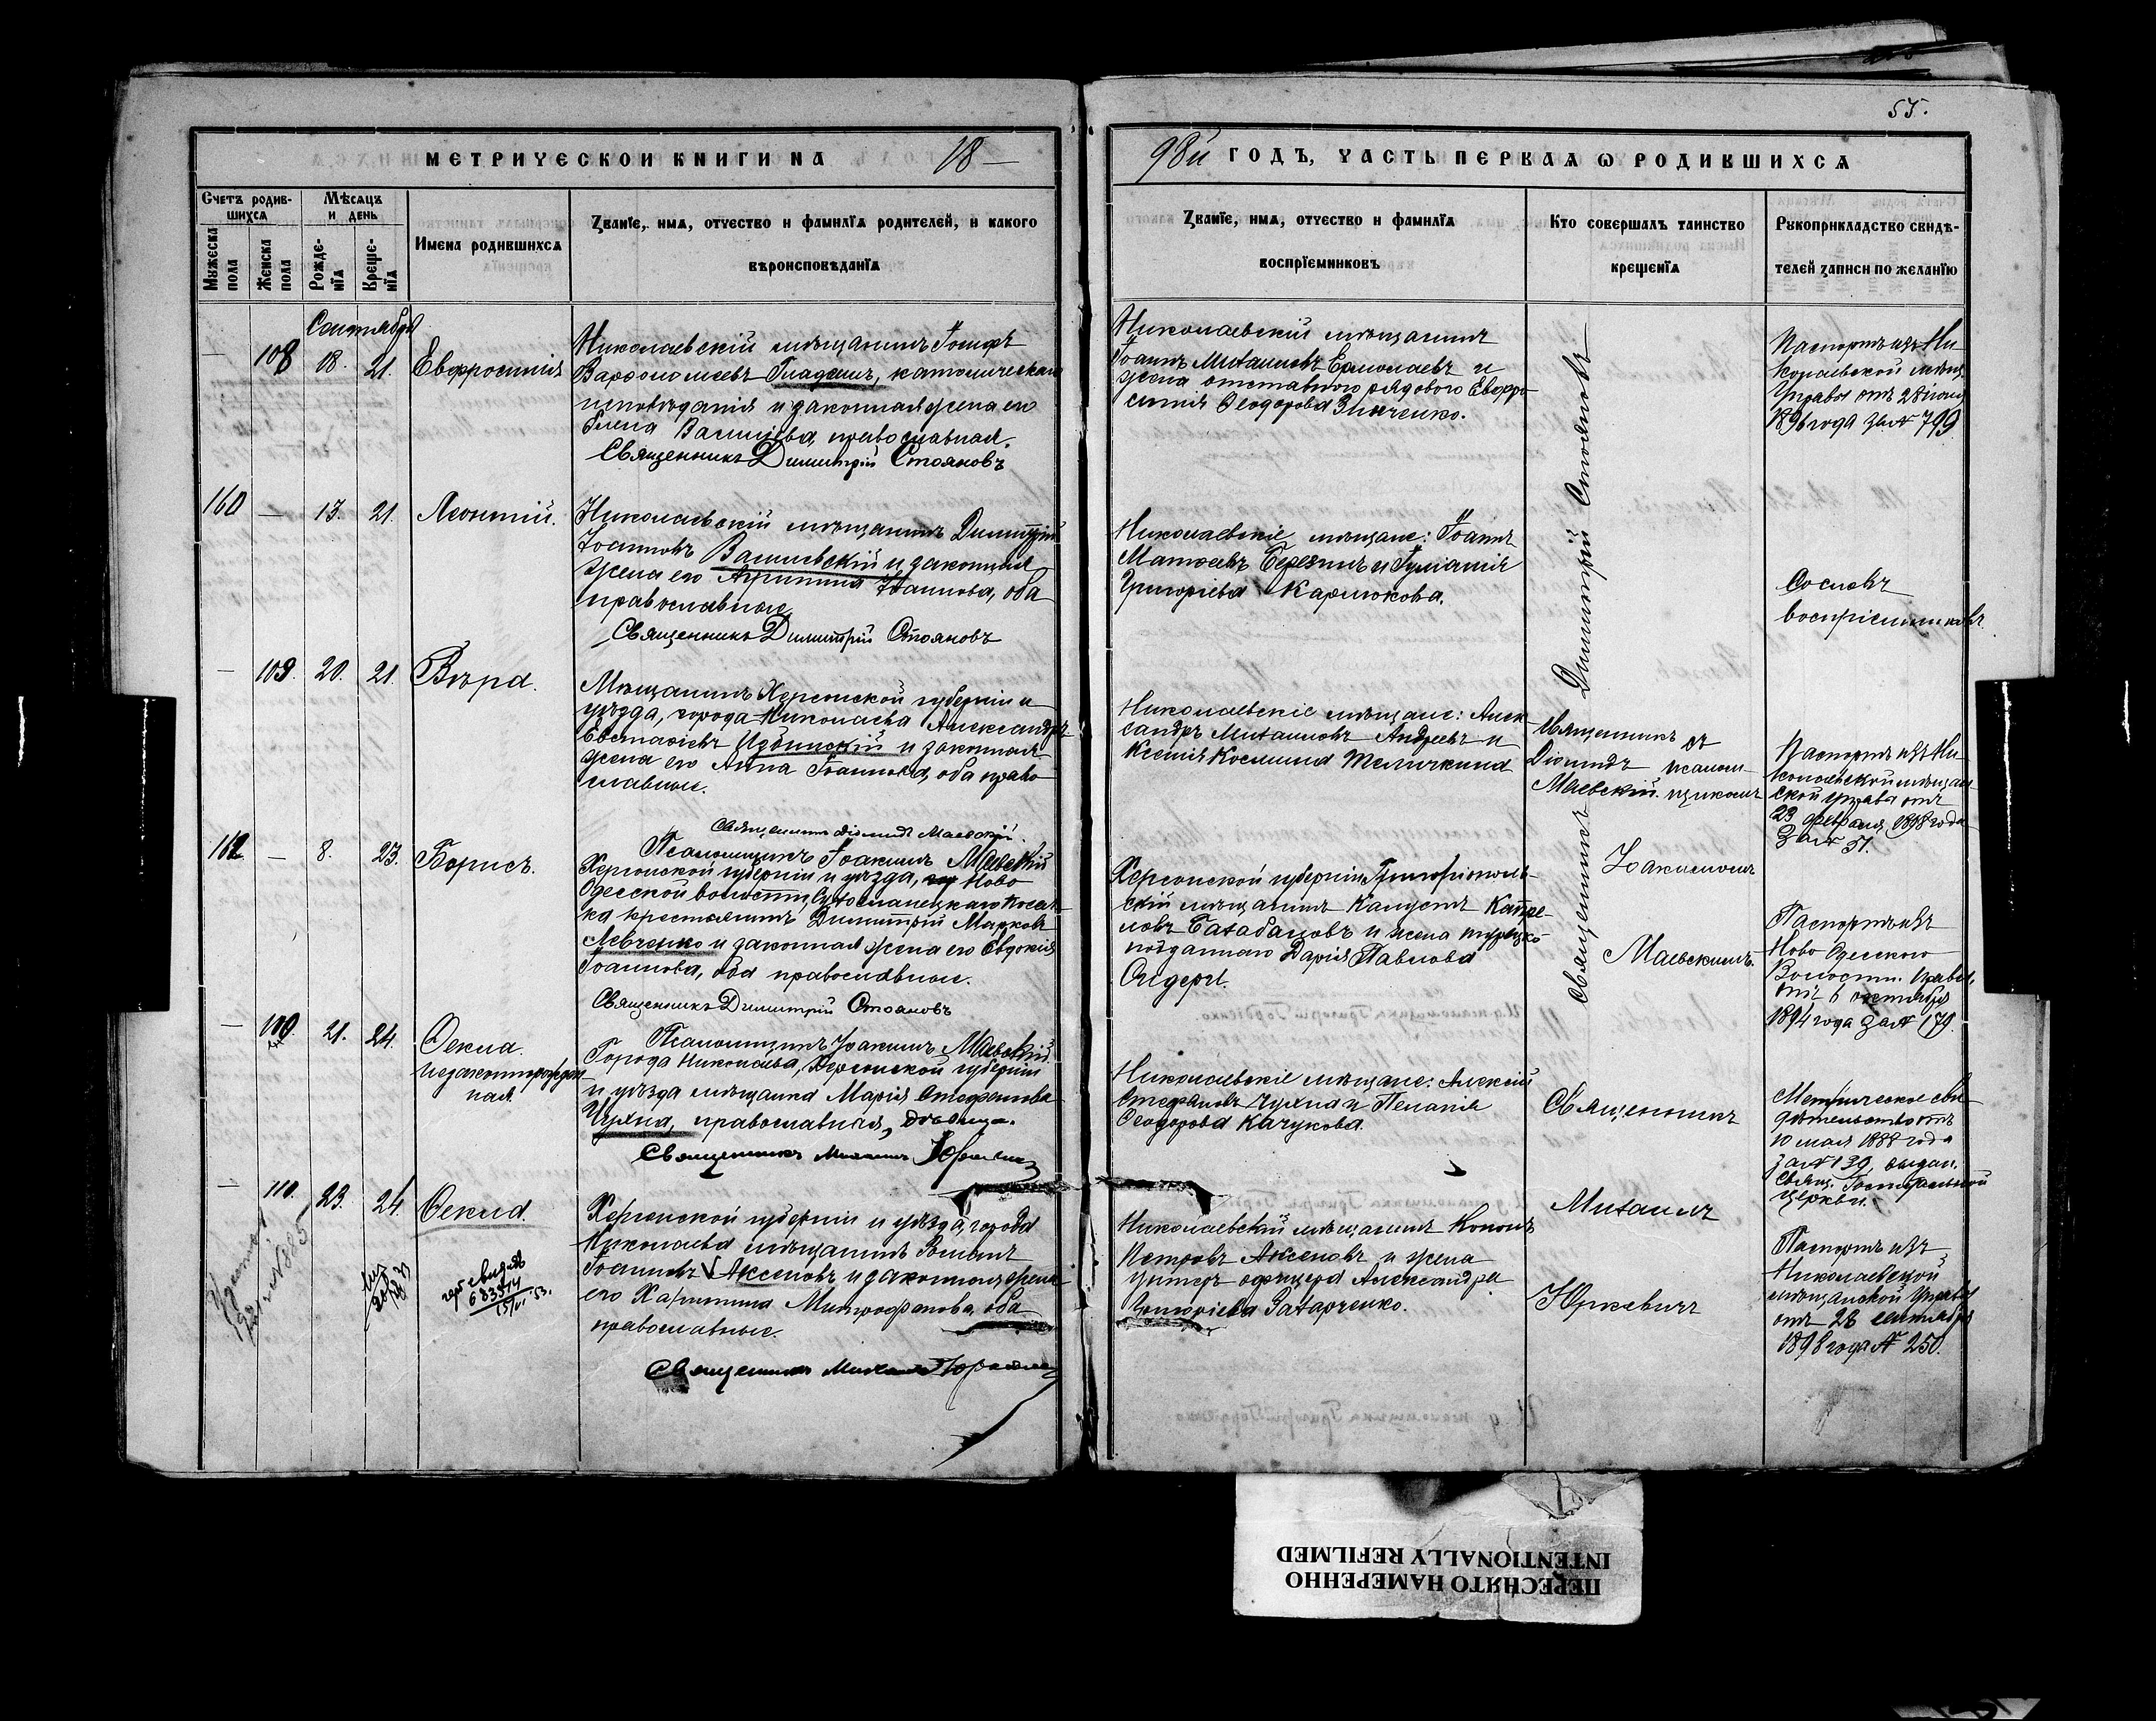 55.
МЕТРИЧЕСКОЙ КНИГИ НА 18—
98й ГОДЪ, ЧАСТЬ ПЕРВАЯ Ѡ РОДИВШИХСѦ
Счетъ родив-
шихсѧ
Мужеска пола
Женска пола
Мѣсѧцъ
и день
Рожде-
нїѧ
Креще-
нїѧ
Имена родившихсѧ
Званїе, имѧ, отчество и фамилїѧ родителей, и какого
вѣроисповѣданїѧ
Званїе, имѧ, отчество и фамилїѧ
воспрїемниковъ
Кто совершалъ таинство
крещенїѧ
Рукоприкладство свидѣ-
телей записи по желанїю
Сентябрь
— 108 18. 21. Евфросинія
Николаевскій мѣщанинъ Іосифъ
Варѳоломеевъ Гладышъ, католическаго
исповѣданія и законная жена его
Елена Васильева, православная.
Священникъ Димитрій Стояновъ
Николаевскій мѣщанинъ
Іоаннъ Михаиловъ Ермолаевъ и
жена отставного рядового Евфро-
синія Ѳеодорова Зинченко.
Паспортъ изъ Ни-
колаевской мѣщ.
Управы отъ 28 іюня
1896 года за № 799
160 — 13. 21. Леонтій.
Николаевскій мѣщанинъ Димитрій
Іоанновъ Васильевскій и законная
жена его Агрипина Іоаннова, оба
православные
Священникъ Димитрій Стояновъ
Николаевскіе мѣщане: Іоаннъ
Матѳеевъ Березинъ и Іуліанія
Григоріева Карпюкова.
Со словъ
воспріемниковъ.
— 109. 20. 21. Вѣра.
Мѣщанинъ Херсонской губерніи и
уѣзда, города Николаева Александръ
Евстаѳіевъ Избинскій и законная
жена его Анна Іоаннова, оба право-
славные.
Священникъ Діомидъ Маевскій.
Псаломщикъ Іоакимъ Маевскій
Николаевскіе мѣщане: Алек-
сандръ Михаиловъ Андреевъ и
Ксенія Космина Теличкина
Паспортъ изъ Ни-
колаевской мѣщан-
ской управы отъ
23 февраля 1898 года
за № 51.
Священникъ Димитрій Стояновъ
Священникъ съ
Діомидъ псалом-
Маевскій. щикомъ
Іоакимомъ
Маевскимъ.
8. 23. Борисъ.
Херсонской губерніи и уѣзда, Ново
Одесской волости,
крестьянинъ Димитрій Марковъ
Левченко и законная жена его Евдокія
Іоаннова, оба православные.
Священникъ Димитрій Стояновъ
Псаломщикъ Іоакимъ Маевскій.
Херсонской губерніи Григоріополь-
скій мѣщанинъ Калустъ
и жена турецко-
подданаго Дарія Павлова
Паспортъ изъ
Ново Одесского
Волостн. Правл.
отъ 6 октября
1894 года за № 179.
— 21. 24. Ѳекла.
незаконнорожден-
ная
Города Николаева, Херсонской губерніи
и уѣзда мѣщанка Марія Стефанова
Чухна, православная, дѣвица.
Священникъ Михаилъ Юркевичъ
Николаевскіе мѣщане: Алексій
Стефановъ Чухна и Пелагія
Ѳеодорова Качукова.
Священникъ
Михаилъ
Юркевичъ
Метрическое сви-
дѣтельство отъ
10 мая 1888 года
за № 139, выдан.
Свящ. Госпитальной
церкви.
— 110. 23. 24. Ѳекла.
Херсонской губерніи и уѣзда, города
Николаева мѣщанинъ Романъ
Іоанновъ Аксеновъ и законная жена
его Харитина Митрофанова, оба
православные.
Священникъ Михаилъ Юркевичъ
Николаевскій мѣщанинъ Кононъ
Петровъ Аксеновъ и жена
унтеръ офицера Александра
Григоріева Захарченко.
Паспортъ изъ
Николаевской
мѣщанской Управы
отъ 28 сентября
1898 года № 250.
ПЕРЕСНЯТО НАМЕРЕННО
INTENTIONALLY REFILMED